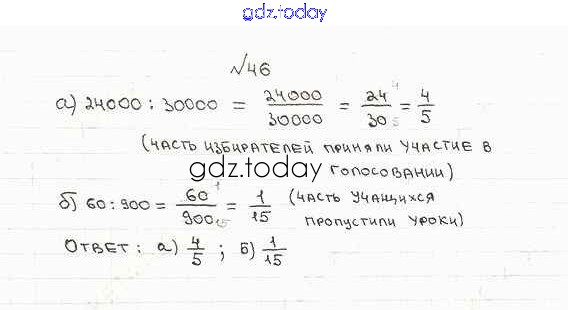 gdz.today
№46
а) 24000 : 30000 = 24000/30000 = 24⁴/30₅ = 4/5
(часть избирателей приняли участие в
gdz.today
голосовании)
б) 60 : 900 = 60¹/900₁₅ = 1/15 (часть учащихся
пропустили уроки)
Ответ: а) 4/5 ; б) 1/15